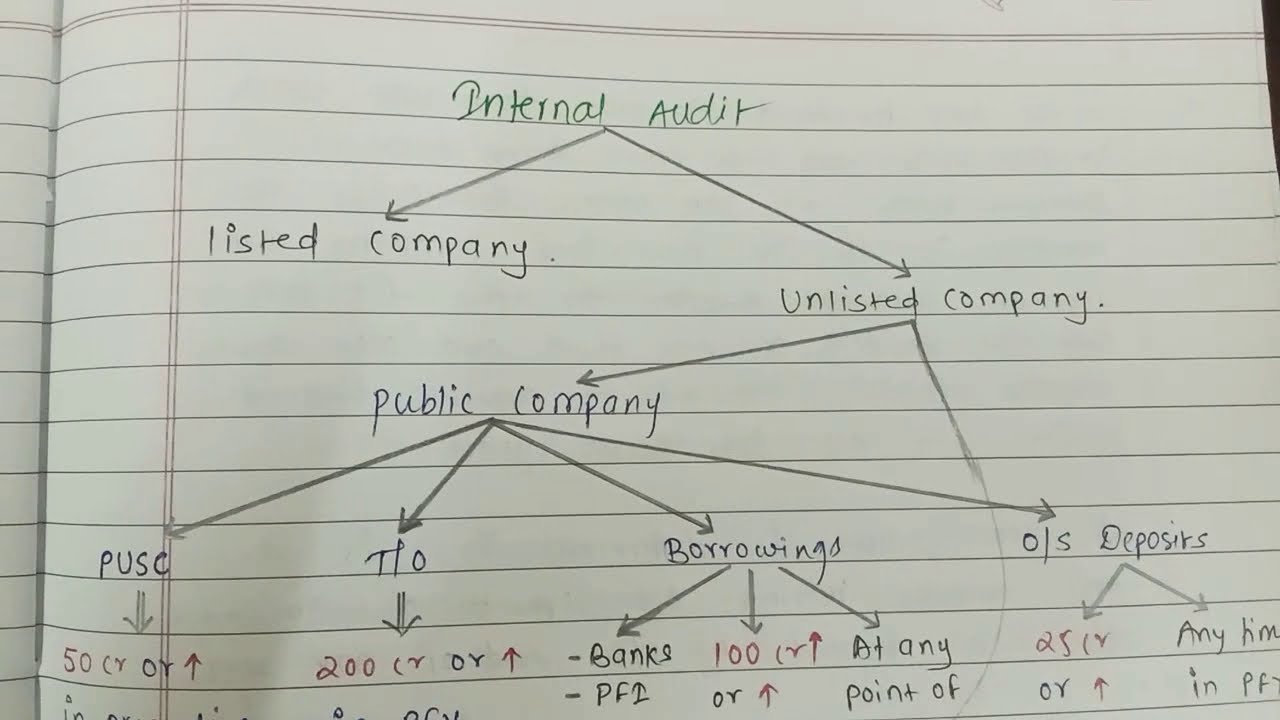 Internal Audit
listed company.
Unlisted company.
Public company
PUSC T/O Borrowings O/S Deposits
50 cr or ↑ 200 cr or ↑ - Banks 100 cr ↑ At any 25 cr Any
- PFI or ↑ point of or ↑ in PFY
in